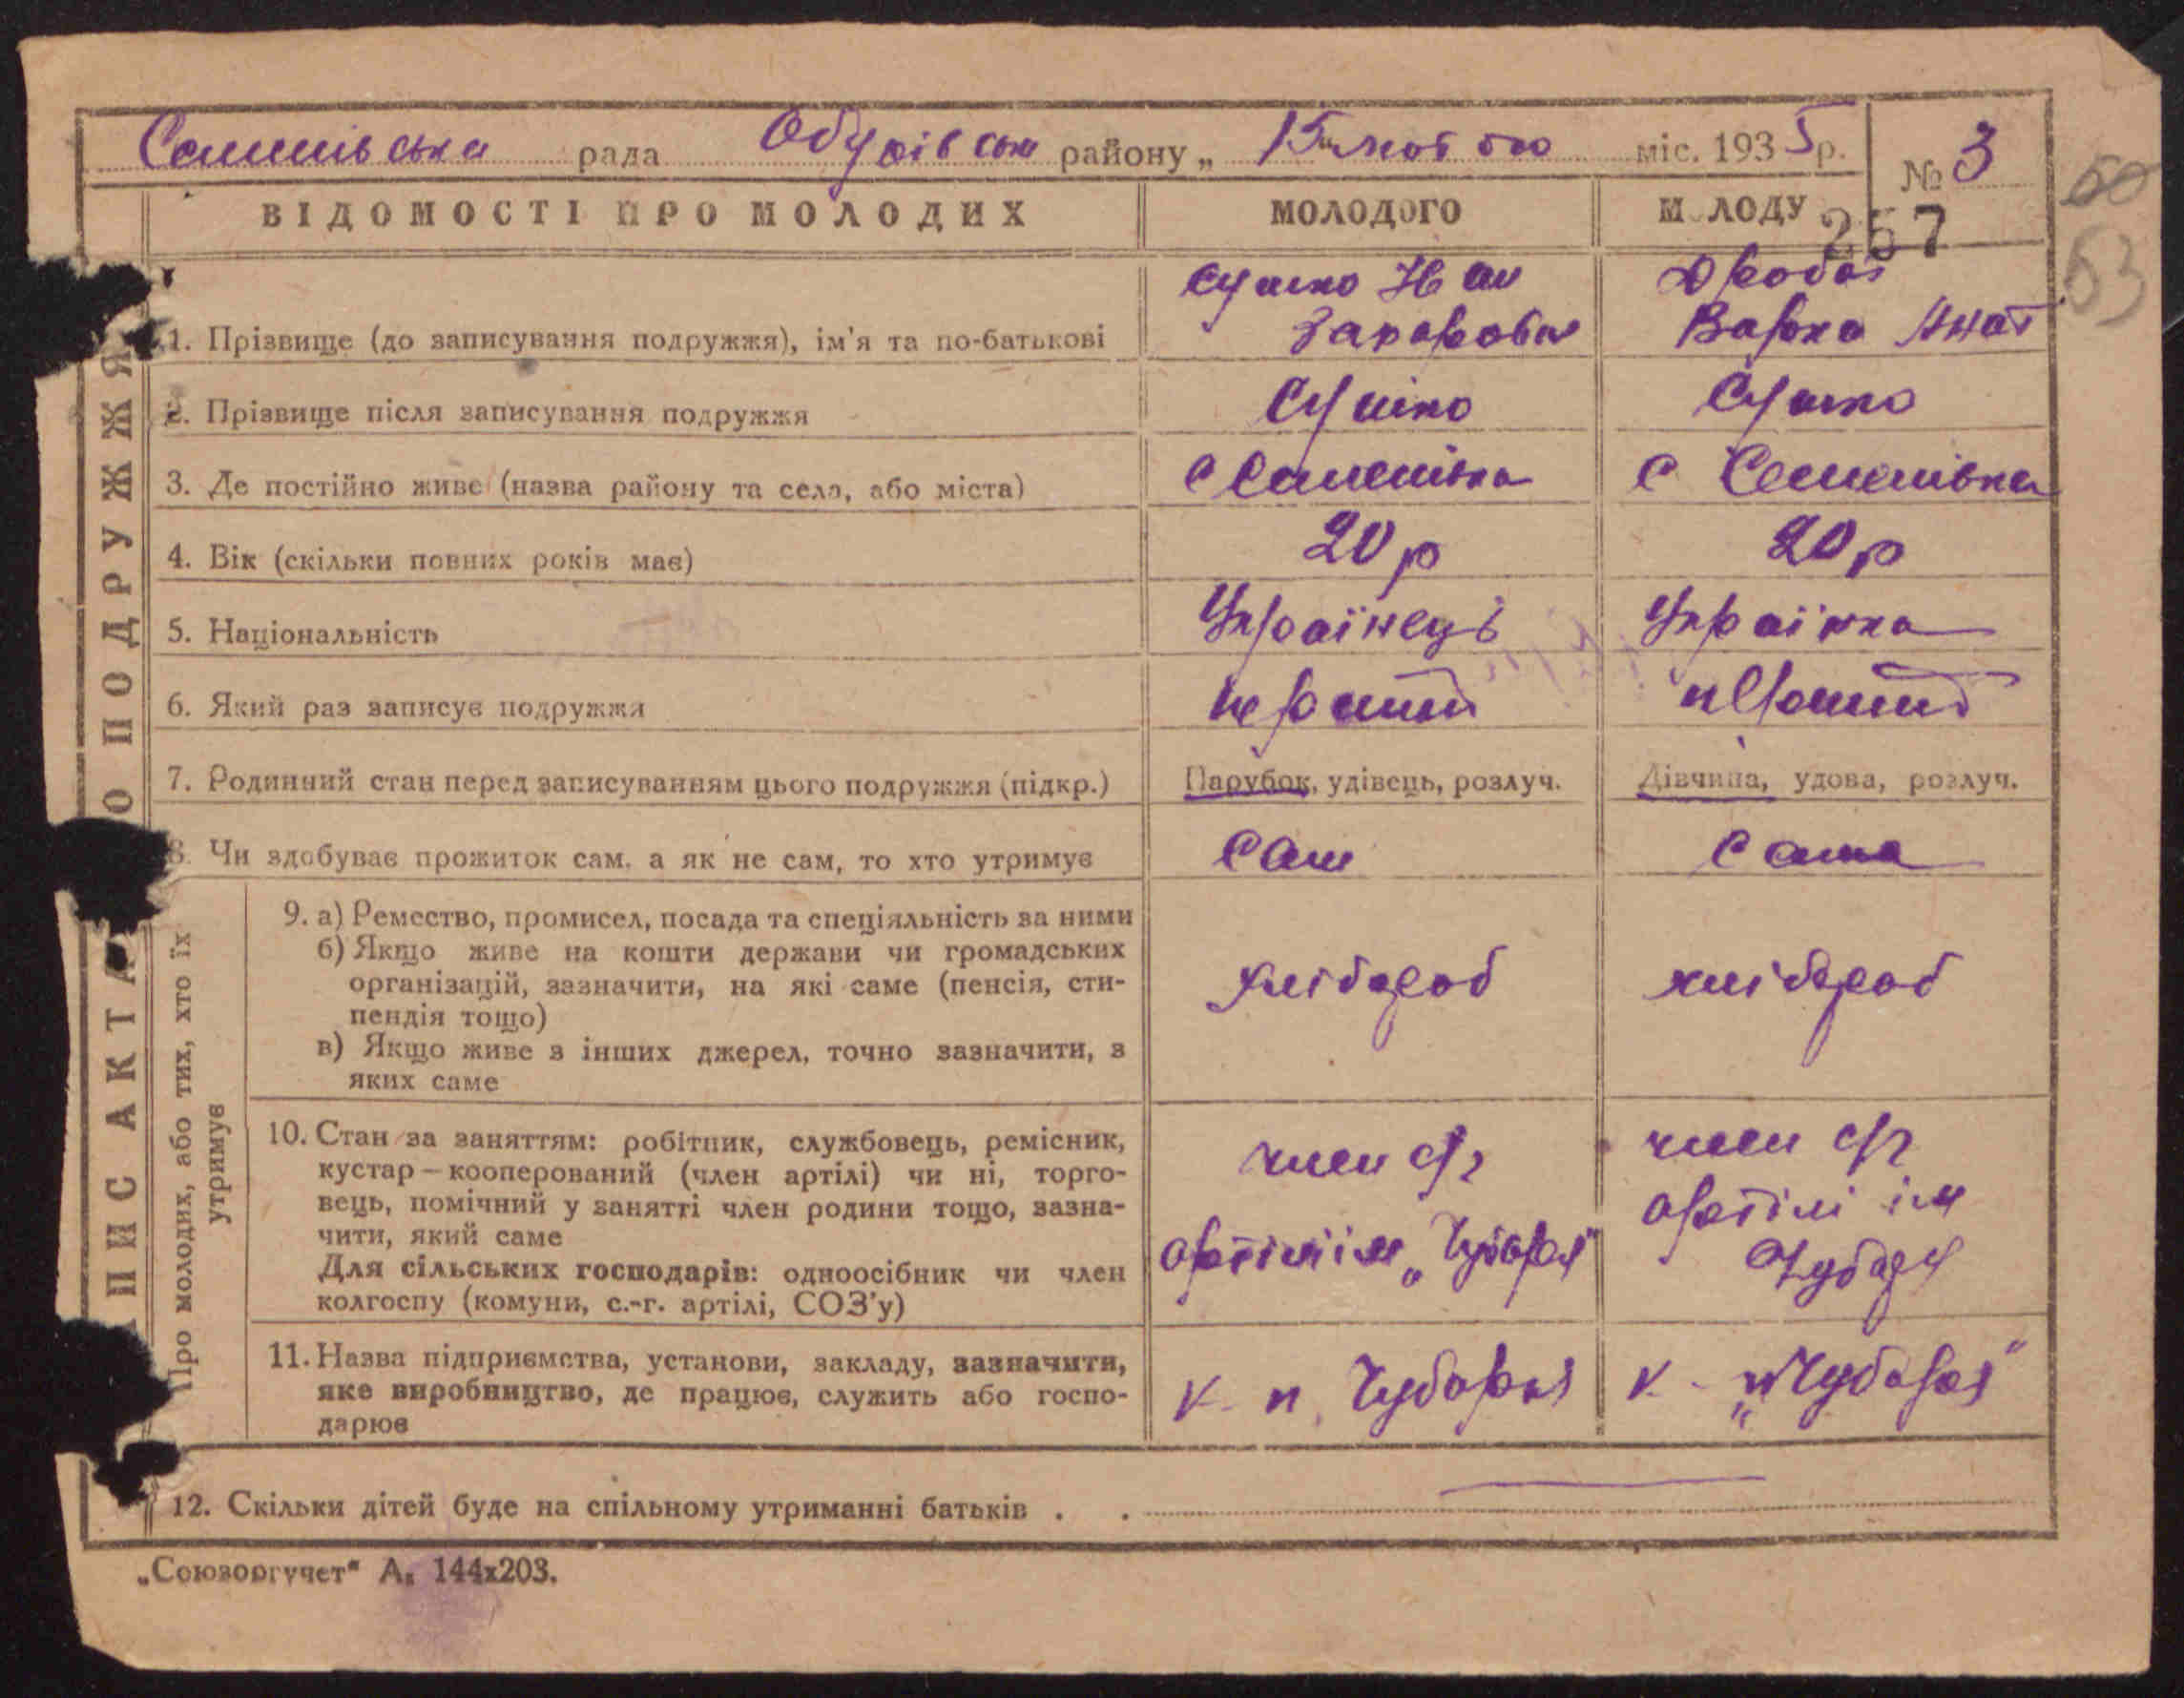 рада району „ 15 міс. 1935 р. № 3
60
63
ВІДОМОСТІ ПРО МОЛОДИХ МОЛОДОГО М ЛОДУ 257
1. Прізвище (до записування подружжя), ім'я та по-батькові Сушко Варка
2. Прізвище після записування подружжя Сушко Сушко
3. Де постійно живе (назва району та села, або міста) с с
4. Вік (скільки повних років має) 20 р 20 р
5. Національність Українець Українка
6. Який раз записує подружжя перший перший
7. Родинний стан перед записуванням цього подружжя (підкр.) Парубок, удівець, розлуч. Дівчина, удова, розлуч.
8. Чи здобуває прожиток сам, а як не сам, то хто утримує сам сама
9. а) Ремество, промисел, посада та спеціяльність за ними
б) Якщо живе на кошти держави чи громадських
організацій, зазначити, на які саме (пенсія, сти-
пендія тощо)
в) Якщо живе з інших джерел, точно зазначити, з
яких саме
хлібороб хлібороб
10. Стан за заняттям: робітник, службовець, ремісник,
кустар — кооперований (член артілі) чи ні, торго-
вець, помічний у занятті член родини тощо, зазна-
чити, який саме
Для сільських господарів: одноосібник чи член
колгоспу (комуни, с.-г. артілі, СОЗ'у)
член с/г
артілі ім „Чубаря"
член с/г
артілі ім
Чубаря
11. Назва підприємства, установи, закладу, зазначити,
яке виробництво, де працює, служить або госпо-
дарює
Чубаря „Чубаря"
12. Скільки дітей буде на спільному утриманні батьків . .
ПИС АКТА О ПОДРУЖЖЯ
Про молодих, або тих, хто їх
утримує
„Союзоргучет" А₅ 144х203.